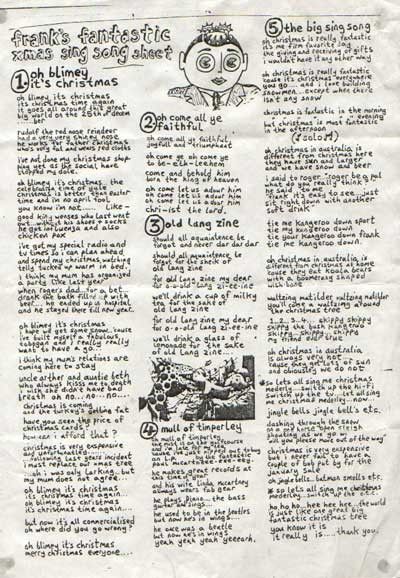 frank's fantastic
xmas sing song sheet
1 oh blimey
it's christmas
oh blimey it's christmas
it's christmas time again
it goes all around this great
big world on the 25th of decem
ber
rudolf the red nose reindeer
had a very very shiny nose
he works for father christmas
who's very fat and wears red clothes
i've not done my christmas shop
ping yet as the social have
stopped my dole.
oh blimey it's christmas the
celebration time of year
christmas is better than easter
time and i'm no april fool
you know i'm not......
good king wenses who last went
out...without his shoes & socks
he got influenza and also
chicken pox
i've got my special radio and
tv times so i can plan ahead
and spend my christmas watching
telly tucked up warm in bed
i think my mum has organised
a party like last year
when roger's dad..for a bet..
drank the bath filled up with
beer... he ended up in hospital
and he stayed there till new year..
oh blimey it's christmas
i hope we get some snow..'cause
i've built myself a fabulous
toboggan and i really really
want to have a go...
i think my mum's relations are
coming here to stay
uncle arthur and auntie beth
who always kisses me to death
i wish she didn't have bad
breath oh no... no... no...
christmas is coming
and the turkey's getting fat
have you seen the price of
christmas cards
how can i afford that?
christmas is very expensive
and unfortunately.....
following last years incident
i must replace our xmas tree
...oh i was only larking...but
my mum does not agree...
oh blimey it's christmas
it's christmas time again..
oh blimey it's christmas
it's christmas time again...
but now it's all commercialised
oh where did you go wrong?
oh blimey it's christmas
merry christmas everyone....
2 oh come all ye
faithful
oh come all ye faithful
joyfull and triumphant
oh come ye oh come ye
to bet-eth-leehem
come and behold him
born the king of heaven
oh come let us adour him
oh come let us adour him
oh come let us adour him
chri-ist the lord.
3 old lang zine
should all aquaintence be
forgot and never dar dar dar
should aquaintence be
forgot for the sheik of
old lang zine
for old lang zine my dear
for o-o-old lang zi-ee-ine
we'll drink a cup of milky
tea for the sake of
old lang zine
for old lang zine my dear
for o-o-old lang zi-ee-ine
we'll drink a glass of
lemonade for the sake
of old lang zine...
4 mull of timperley
oh mull of timperley
the mist in on the golfcourse
my desire is for tea
'cause i've just nipped out to buy
by the fantastic
paul mccartney (ex-beatle)
he makes great records at
this time of year
and his wife linda mccartney
always wears fab gear
he plays piano...the bass
guitar and sings..
he used to be in the beatles
but now he's in wings
he once was a beatle
but now he's in wings
yeah yeah yeah yeeearh.
5 the big sing song
oh christmas is really fantastic
it's me firm favorite day
the giving and receiving of gifts
i wouldn't have it any other way
oh christmas is really fantastic
because it's christmas everywhere
you go.... and i love building
snowmen...except when there
isn't any snow
christmas is fantastic in the morning
evening
but christmas is most fantastic
in the afternoon
(solo)
oh christmas in australia is
different from christmas here
they have sun and larger
and we have snow and beer
i said to roger "roger be a pal
what do you really think"
he said to me
"frank it's easy to see...just
sit right down with another
soft drink"
tie me kangeroo down sport
tie my kangeroo down
tie your kangeroo down frank
tie me kangeroo down.
oh christmas in australia is
different from christmas at home
'cause they eat koala bears
with a boomerang shaped
wish bone
waltzing matilder waltzing matilder
you'll come a waltzing around
the christmas tree
1...2...3...4... skippy skippy
skippy the bush kangeroo
skippy...skippy...skippy
my friend ever true
oh christmas in australia
is always very hot
'cause they get lots of sun
and obviously we do not
so lets all sing me christmas
mederley... switch up the hi-fi
switch up the tv...let all sing
me christmas medely...now
jingle bells jingle bell's etc.
dashing through the snow
on a one horse open sleigh
shouting as we go
will you please move out of the way
christmas is very expensive
but i never fail to have a
couple of bob put by for the
january sale
oh jingle bells..batman smells etc
so lets all sing me christmas
mederley..switch up the etc.
ho, ho, ho.. hee hee hee...the world
is just like one great big
fantastic christmas tree
you know it is
it really is.....thank you.